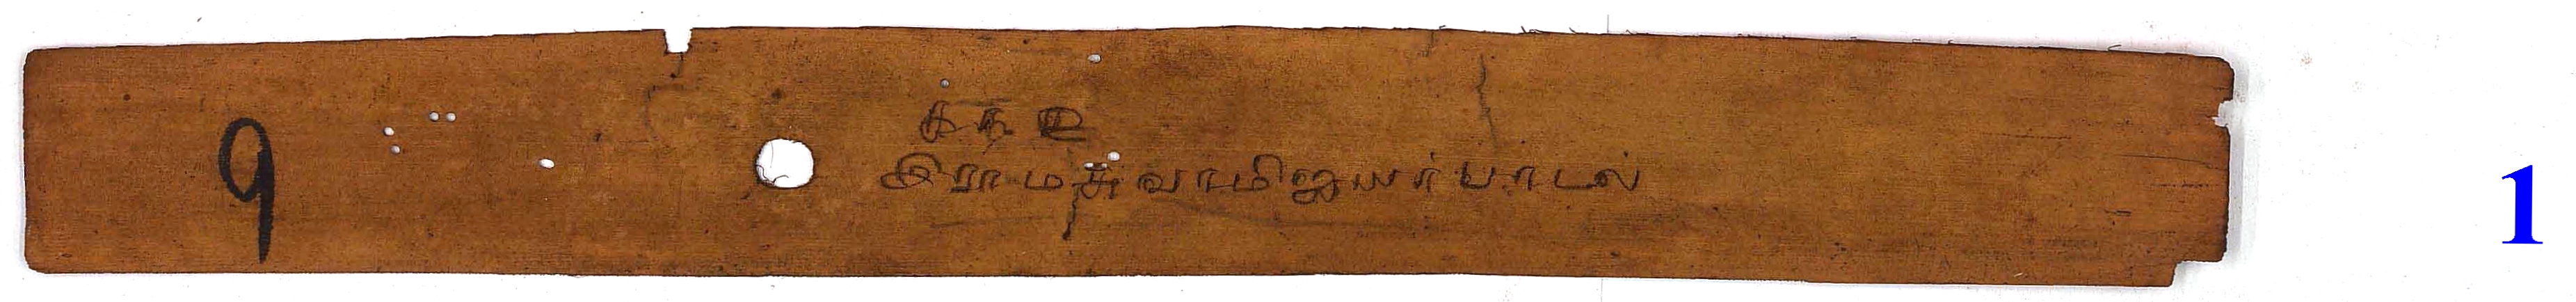 9
இராமசுவாமிஐயர்பாடல்
1